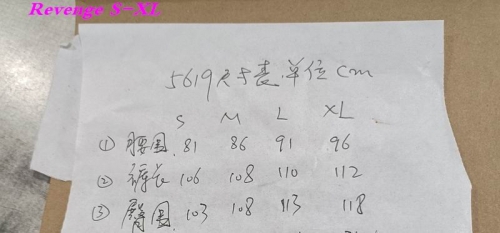 Revenge S-XL
5619尺寸表.单位cm
S M L XL
① 腰围 81 86 91 96
② 裤长 106 108 110 112
③ 臀围 103 108 113 118